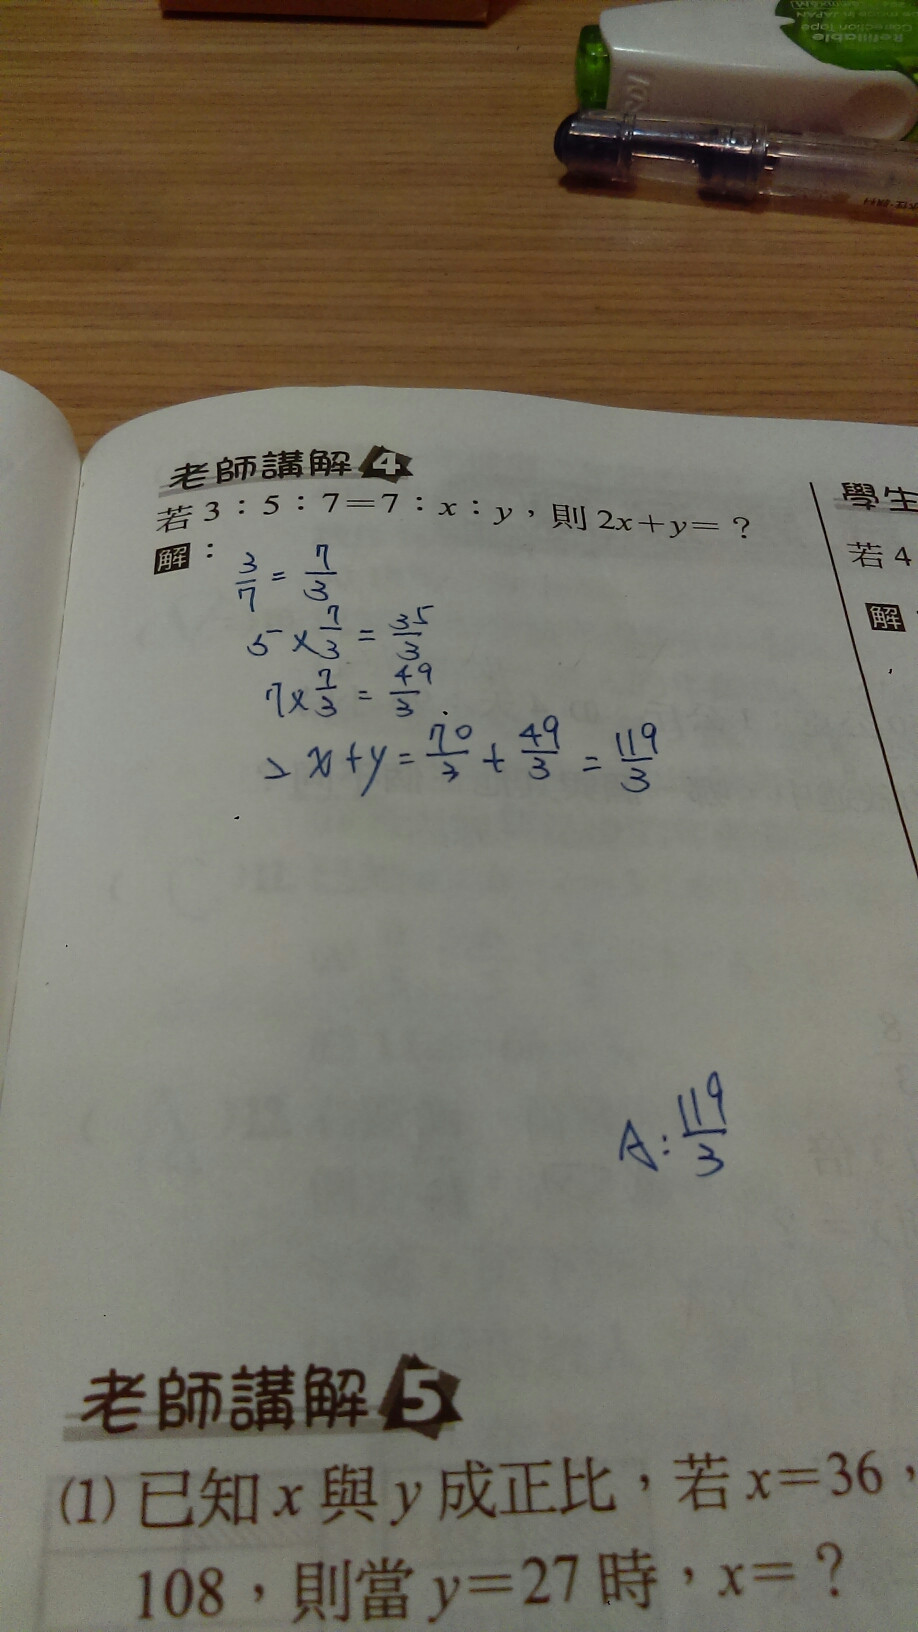 Refillable
Correction Tape
MADE IN JAPAN
老師講解 4
若 3：5：7＝7：x：y，則 2x＋y＝？
解：
3/7 = 7/3
5 × 7/3 = 35/3
7 × 7/3 = 49/3
2x+y = 70/3 + 49/3 = 119/3
A: 119/3
學生
若 4
解
老師講解 5
(1) 已知 x 與 y 成正比，若 x＝36，
108，則當 y＝27 時，x＝？